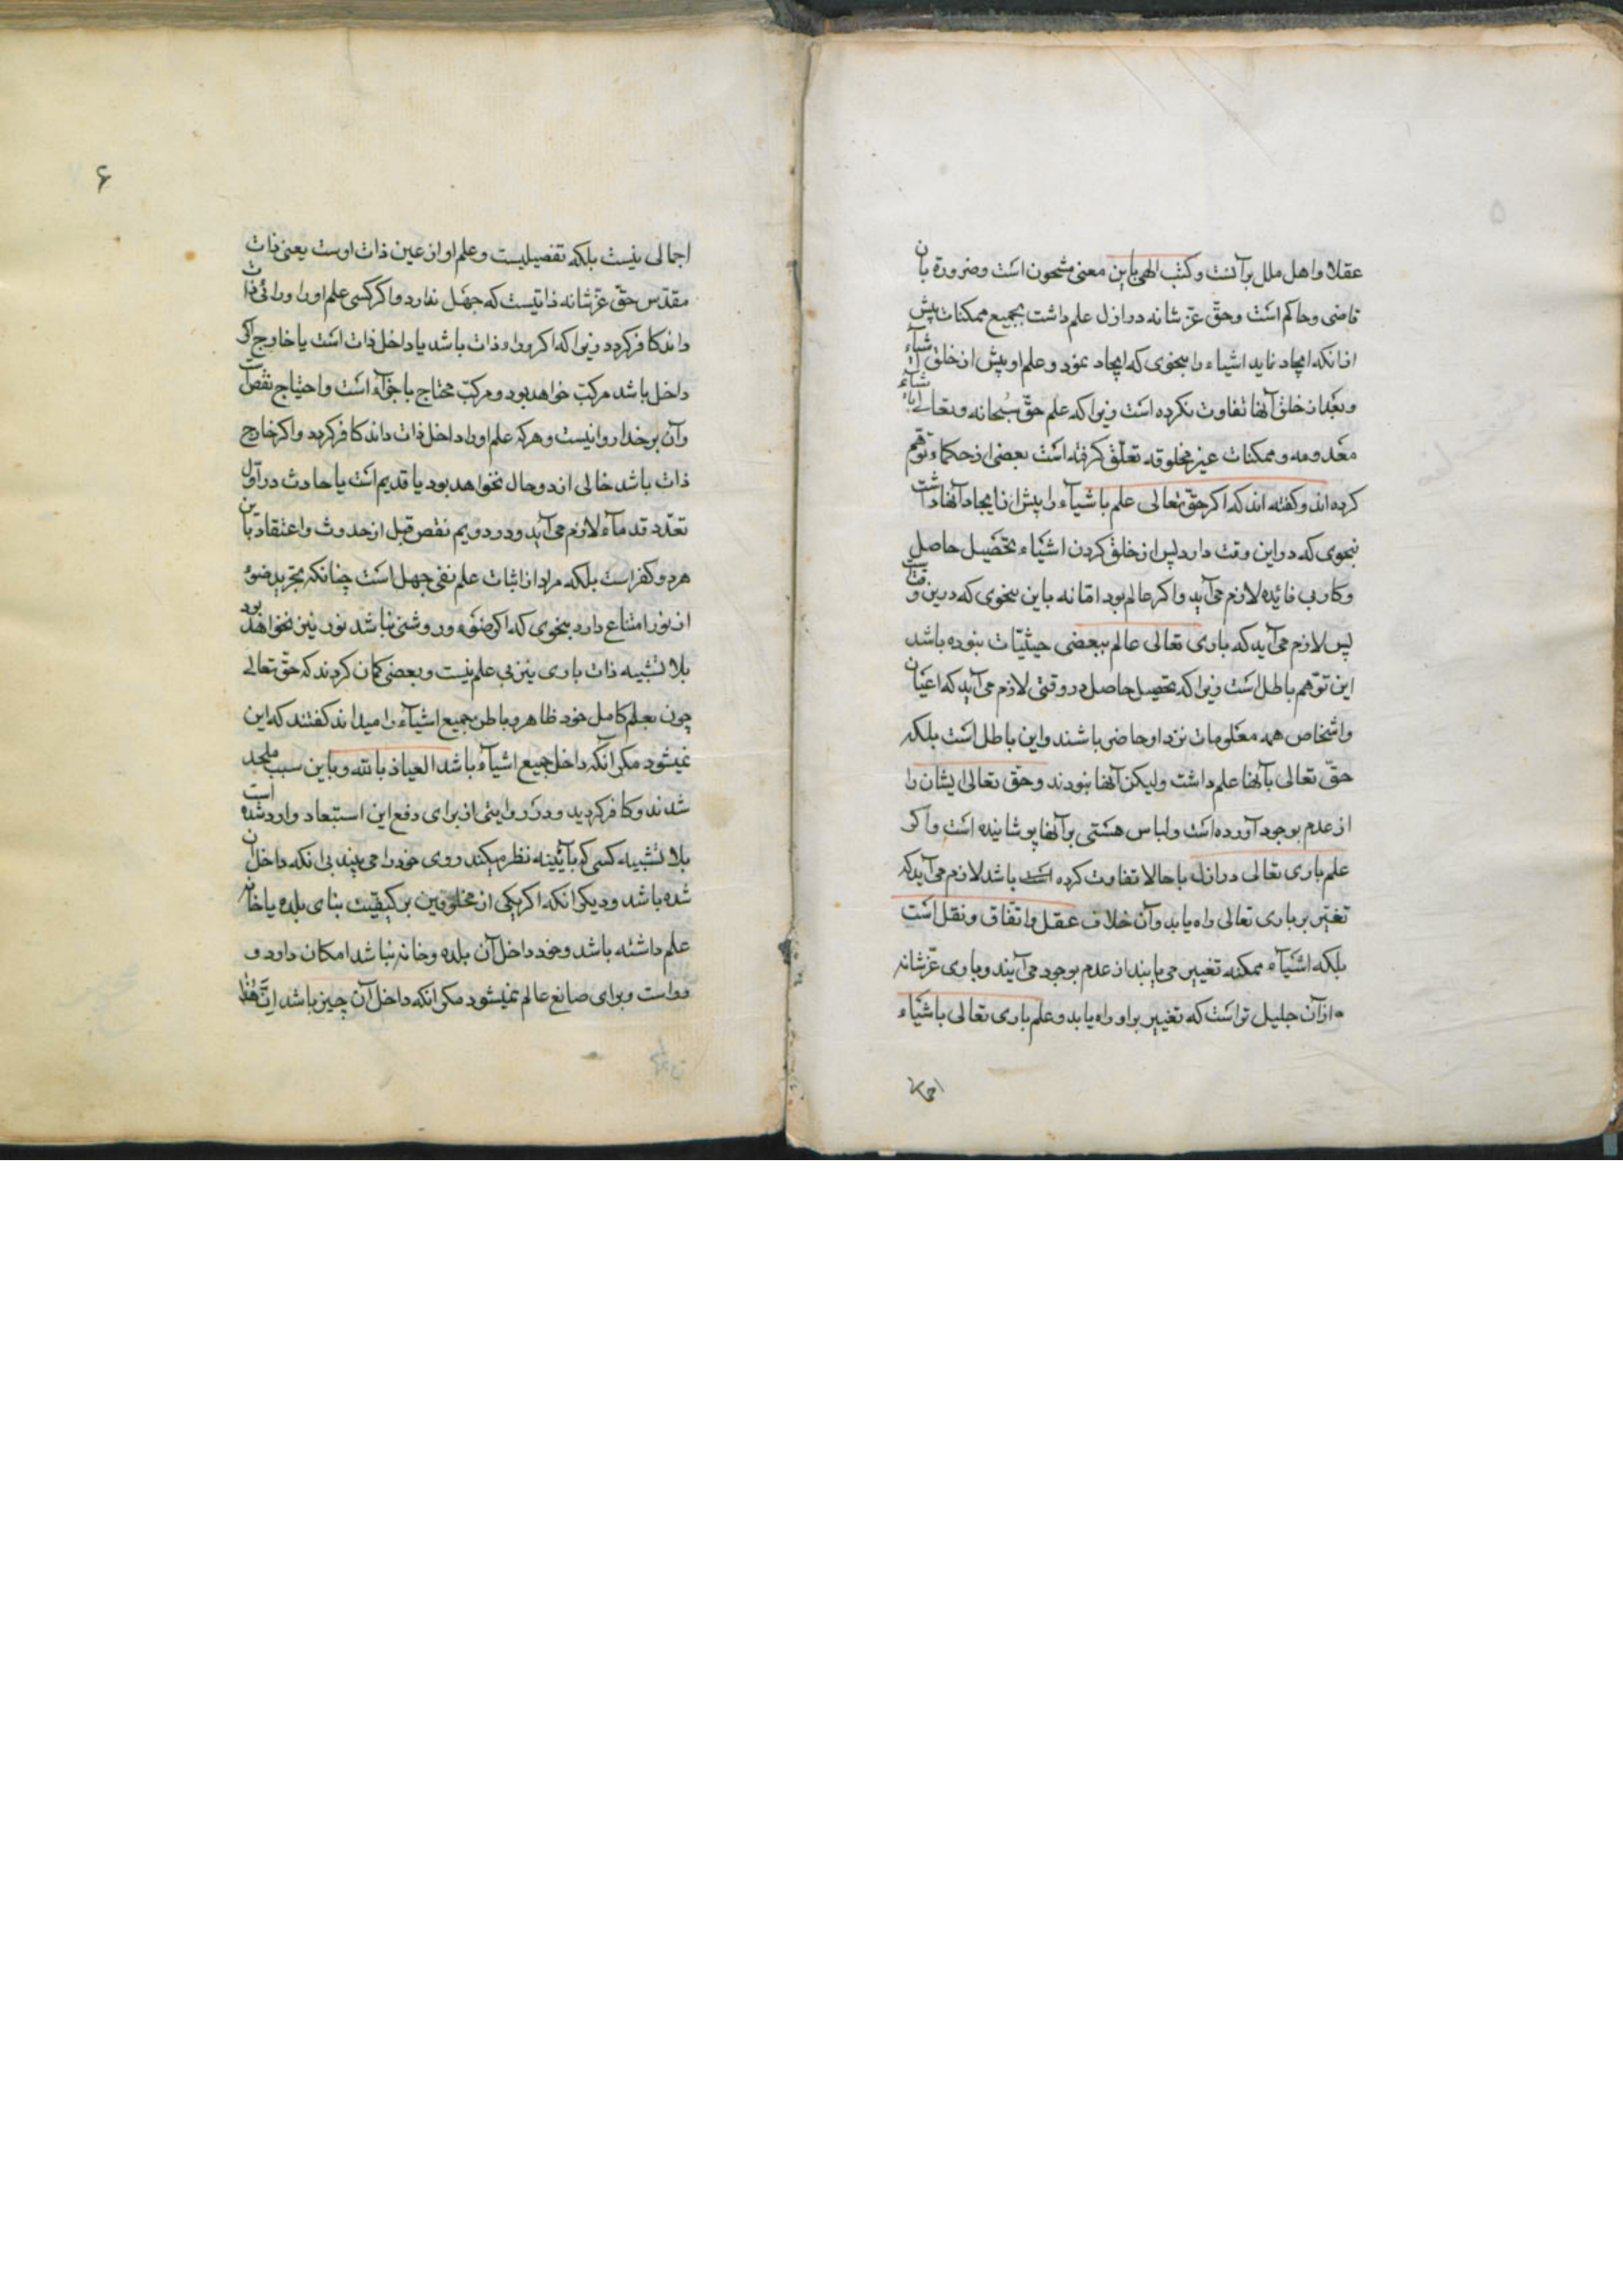 ۵
عقلا و اهل ملل برآنست و کتب الهی باین معنی مشحون است و ضرورة بان
قاضی و حاکم است و حقّ عزّ شانه در ازل علم داشت بجمیع ممکنات پیش
از انکه ایجاد نماید اشیاء را بنحوی که ایجاد نمود و علم او پیش از خلق اشیآء
و بعد از خلق آنها تفاوت نکرده است زیرا که علم حقّ سبحانه و تعالے باشیآء
معدومه و ممکنات غیر مخلوقه تعلّق گرفته است بعضی از حکما توهّم
کرده اند و گفته اند که اگر حقّ تعالی علم باشیآء را پیش از ایجاد آنها داشت
بنحوی که در این وقت دارد پس از خلق کردن اشیاء تحصیل حاصل
و کار بی فائیده لازم می آید و اگر عالم بود امّا نه باین نحوی که درین وقت
پس لازم می آید که باری تعالی عالم ببعضی حیثیّات نبوده باشد
این توهّم باطل است زیرا که تحصیل حاصل در وقتی لازم می آید که اعیان
و اشخاص همه معلومات نزد او حاضر باشند و این باطل است بلکه
حقّ تعالی بآنها علم داشت ولیکن آنها نبودند و حقّ تعالی ایشان را
از عدم بوجود آورده است و لباس هستی برآنها پوشانیده است و اگر
علم باری تعالی در ازل با حالا تفاوت کرده باشد لازم می آید که
تغیّر بر باری تعالی راه یابد و آن خلاف عقل و اتّفاق و نقل است
بلکه اشیآء ممکنه تغییر می یابند از عدم بوجود می آیند و باری عزّ شانه
از آن جلیل تر است که تغییر براو راه یابد و علم باری تعالی باشیآء
اجمالی
۶
اجمالی نیست بلکه تفصیلیست و علم او از عین ذات اوست یعنی ذات
مقدّس حقّ عزّ شانه ذاتیست که جهل ندارد و اگر کسی علم او را ورائی ذات
داند کافر گردد زیرا که اگر وراء ذات باشد یا داخل ذات است یا خارج اگر
داخل باشد مرکّب خواهد بود و مرکّب محتاج باجزآء است و احتیاج نقص است
و آن بر خدا روا نیست و هرکه علم او را داخل ذات داند کافر گردد و اگر خارج
ذات باشد خالی از دو حال نخواهد بود یا قدیم است یا حادث در اوّل
تعدّد قدمآء لازم می آید و در دویم نقص قبل از حدوث و اعتقاد باین
هردو کفر است بلکه مراد از اثبات علم نفی جهل است چنانکه تجرید ضوء
از نور امتناع دارد بنحوی که اگر ضوء و روشنی نباشد نور نیز نخواهد بود
بلا تشبیه ذات باری نیز بی علم نیست و بعضی گمان کردند که حقّ تعالے
چون بعلم کامل خود ظاهر و باطن جمیع اشیآء را میداند گفتند که این
نمیشود مگر آنکه داخل جمیع اشیآء باشد العیاذ بالله و باین سبب ملحد
شدند و کافر گردید و در روایتی از برای دفع این استبعاد وارد شده است
بلا تشبیه کسی که بآئینه نظر میکند روی خود را می بیند بی انکه داخل آن
شده باشد و دیگر انکه اگر یکی از مخلوقین بر کیفیّت بنای بلده یا خانه
علم داشته باشد و خود داخل آن بلده و خانه نباشد امکان دارد و
روا است و برای صانع عالم نمیشود مگر انکه داخل آن چیز باشد انّ هذا